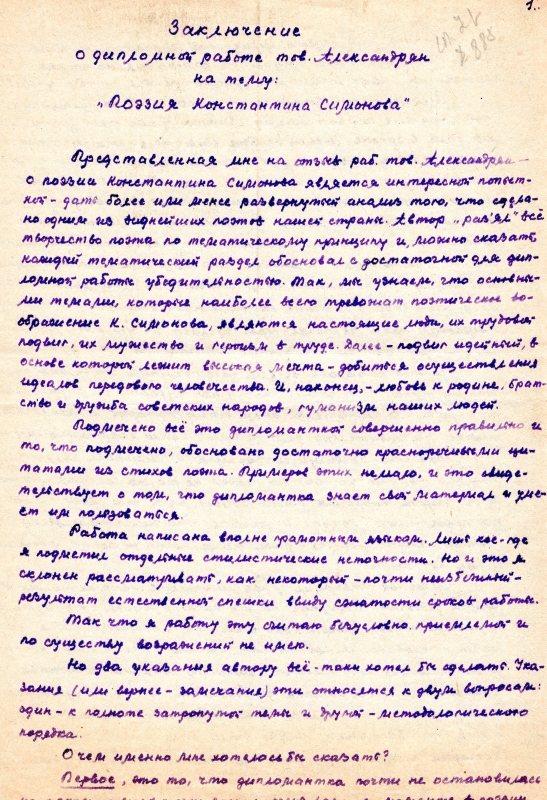 1.
Заключение
о дипломной работе тов. Александрян
на тему:
„Поэзия Константина Симонова"
Представленная мне на отзыв раб. тов. Александрян—
о поэзии Константина Симонова является интересной попыт-
кой - дать более или менее развернутый анализ того, что сдела-
но одним из виднейших поэтов нашей страны. Автор „раз'ял" всё
творчество поэта по тематическому принципу и, можно сказать,
каждый тематический раздел обосновал с достаточной для дип-
ломной работы убедительностью. Так, мы узнаем, что основны-
ми темами, которые наиболее всего тревожат поэтическое во-
ображение К. Симонова, являются настоящие люди, их трудовой
подвиг, их мужество и героизм в труде. Далее - подвиг идейный, в
основе которого лежит высокая мечта - добиться осуществления
идеалов передового человечества. И, наконец, - любовь к родине, брат-
ство и дружба советских народов, гуманизм наших людей.
Подмечено всё это дипломанткой совершенно правильно и
то, что подмечено, обосновано достаточно красноречивыми ци-
татами из стихов поэта. Примеров этих немало, и это свиде-
тельствует о том, что дипломантка знает свой материал и уме-
ет им пользоваться.
Работа написана вполне грамотным языком. Лишь кое-где
я подметил отдельные стилистические неточности. Но и это я
склонен рассматривать, как некоторый - почти неизбежный -
результат естественной спешки ввиду сжатости сроков работы.
Так что я работу эту считаю безусловно приемлемой и
по существу возражений не имею.
Но два указания автору всё-таки хотел бы сделать. Ука-
зания (или вернее - замечания) эти относятся к двум вопросам:
один - к полноте затронутой темы и другой - методологического
порядка.
О чем именно мне хотелось бы сказать?
Первое, это то, что дипломантка почти не остановилась